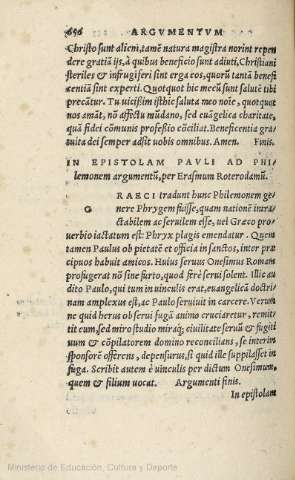 656 ARGVMENTVM
Christo sunt alieni, tamē natura magistra norint repen
dere gratiā ijs, à quibus beneficio sunt adiuti, Christiani
steriles & infrugiferi sint erga eos, quorū tantā benefi
centiā sint experti. Quotquot hic mecū sunt salutē tibi
precātur. Tu uicissim isthic saluta meo noīe, quotquot
nos amāt, nō affectu mūdano, sed euāgelica charitate,
quā fidei cōmunis professio cōciliat. Beneficentia gra
tuita dei semper adsit uobis omnibus. Amen. Finis.
IN EPISTOLAM PAVLI AD PHI
lemonem argumentū, per Erasmum Roterodamū.
GRAECI tradunt hunc Philemonem ge
nere Phrygem fuisse, quam nationē intra
ctabilem ac seruilem esse, uel Græco pro
uerbio iactatum est: Phryx plagis emendatur. Quem
tamen Paulus ob pietatē et officia in sanctos, inter præ
cipuos habuit amicos. Huius seruus Onesimus Romam
profugerat nō sine furto, quod ferè serui solent. Illic au
dito Paulo, qui tum in uinculis erat, euangelicā doctri
nam amplexus est, ac Paulo seruiuit in carcere. Verum
ne quid herus ob serui fugā animo cruciaretur, remit
tit eum, sed miro studio miraq; ciuilitate seruū & fugiti
uum & cōpilatorem domino reconcilians, se interim
sponsorē offerens, depensurus, si quid ille suppilasset in
fuga. Scribit autem è uinculis per dictum Onesimum,
quem & filium uocat. Argumenti finis.
In epistolam
Ministerio de Educación, Cultura y Deporte